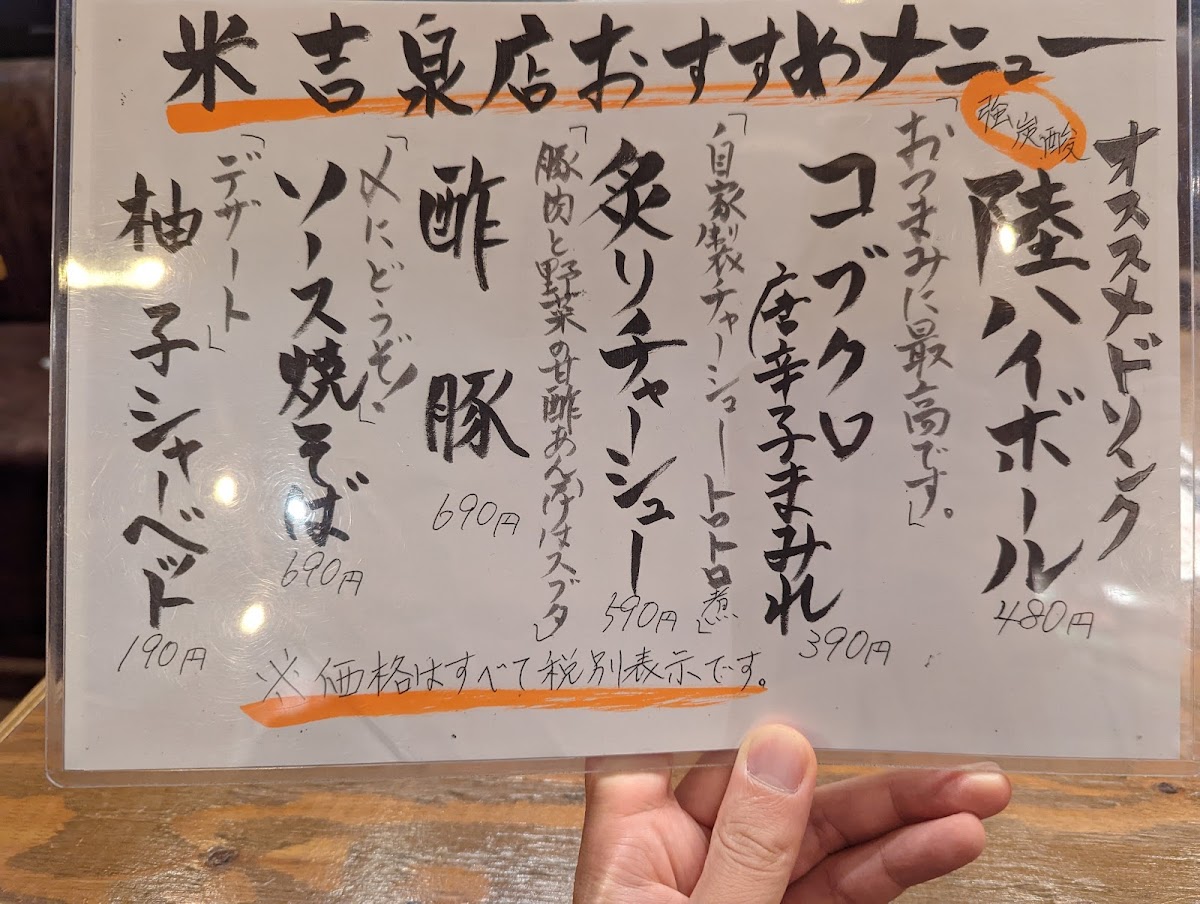 米吉泉店おすすめメニュー
オススメドリンク
強炭酸
陸ハイボール
480円
「おつまみに最高です。」
コブクロ
唐辛子まみれ
390円
「自家製チャーシュー トロトロ煮」
炙りチャーシュー
590円
「豚肉と野菜の甘酢あんかけはスブタ」
酢豚
690円
「〆にどうぞ!」
ソース焼そば
690円
「デザート」
柚子シャーベット
190円
※価格はすべて税別表示です。